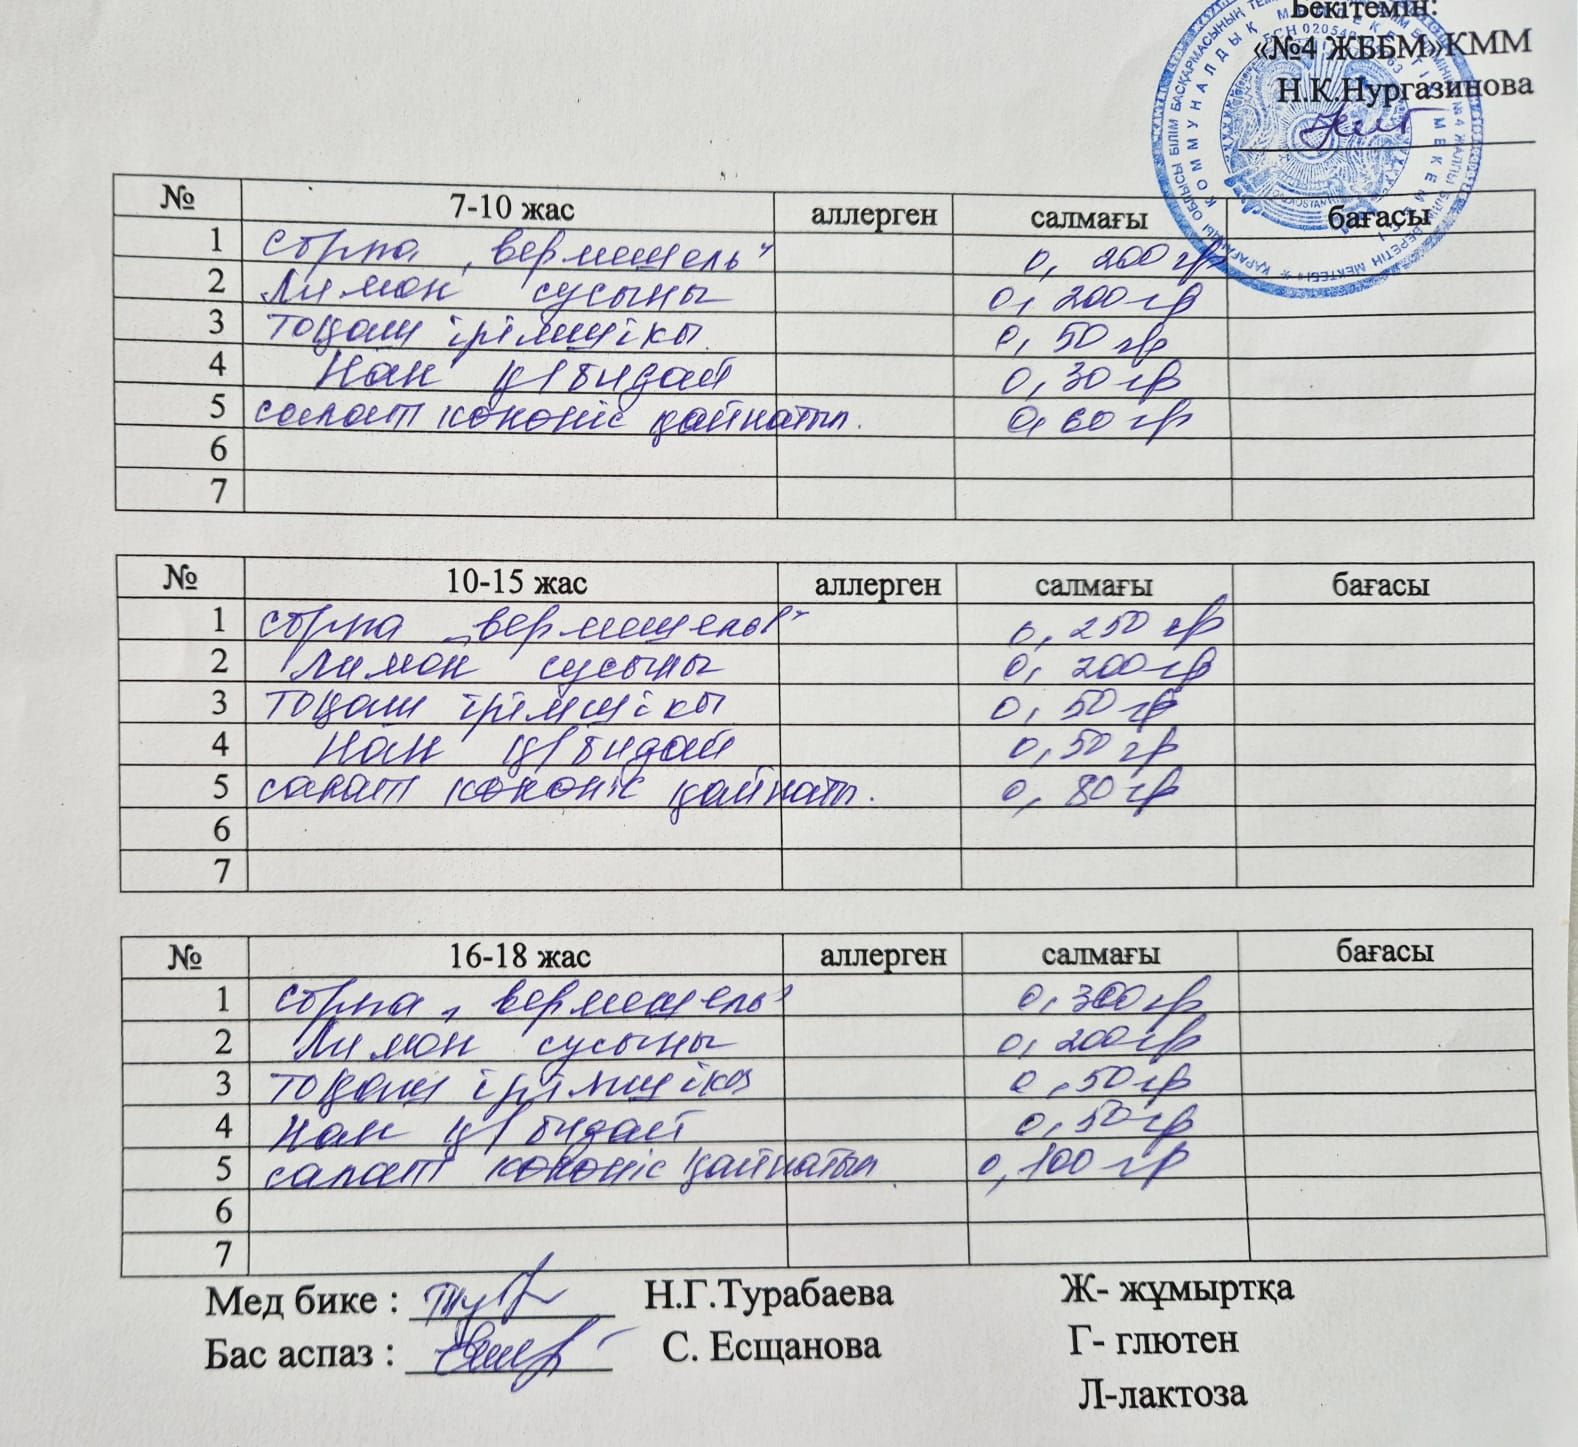 Бекітемін:
«№4 ЖББМ»КММ
Н.К.Нургазинова
№ 7-10 жас аллерген салмағы бағасы
1 сорпа „вермишель" 0, 200 гр
2 Лимон сусыны 0, 200 гр
3 тоқаш ірімшікы 0, 50 гр
4 Нан қ/бидай 0, 30 гр
5 салат көкөніс қайнатыл. 0, 60 гр
6
7
№ 10-15 жас аллерген салмағы бағасы
1 сорпа „вермишель" 0, 250 гр
2 Лимон сусыны 0, 200 гр
3 тоқаш ірімшікы 0, 50 гр
4 Нан қ/бидай 0, 50 гр
5 салат көкөніс қайнаты. 0, 80 гр
6
7
№ 16-18 жас аллерген салмағы бағасы
1 сорпа „вермишель" 0, 300 гр
2 Лимон сусыны 0, 200 гр
3 тоқаш 0, 50 гр
4 Нан қ/бидай 0, 50 гр
5 салат көкөніс қайнатыл 0, 100 гр
6
7
Мед бике : Н.Г.Турабаева Ж- жұмыртқа
Бас аспаз : С. Есщанова Г- глютен
Л-лактоза